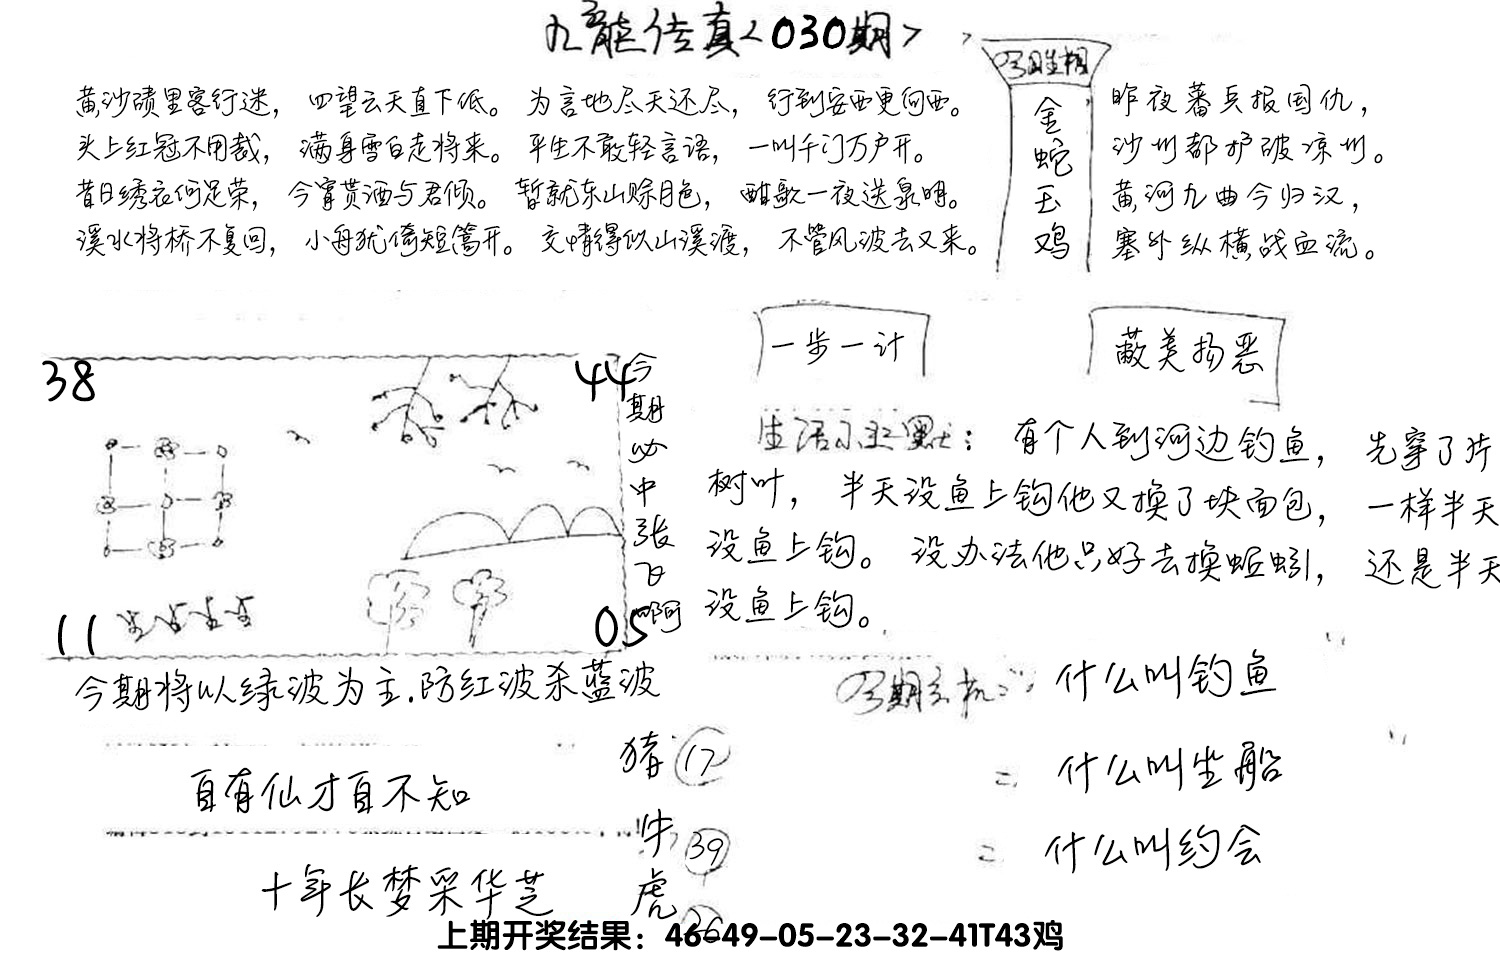 九龍传真<030期>
今期生相
金
蛇
玉
鸡
黄沙碛里客行迷，四望云天直下低。为言地尽天还尽，行到安西更向西。
头上红冠不用裁，满身雪白走将来。平生不敢轻言语，一叫千门万户开。
昔日绣衣何足荣，今宵贳酒与君倾。暂就东山赊月色，酣歌一夜送泉明。
溪水将桥不复回，小舟犹倚短篙开。交情得似山溪渡，不管风波去又来。
昨夜蕃兵报国仇，
沙州都护破凉州。
黄河九曲今归汉，
塞外纵横战血流。
一步一计
蔽美扬恶
38
44
11
05
今期必中张飞啊
生活小幽默：有个人到河边钓鱼，先穿了片
树叶，半天没鱼上钩他又换了块面包，一样半天
没鱼上钩。没办法他只好去换蚯蚓，还是半天
没鱼上钩。
今期将以绿波为主.防红波杀蓝波
今期玄机：什么叫钓鱼
什么叫坐船
什么叫约会
自有仙才自不知
十年长梦采华芝
猪 17
牛 39
虎 26
上期开奖结果：46-49-05-23-32-41T43鸡